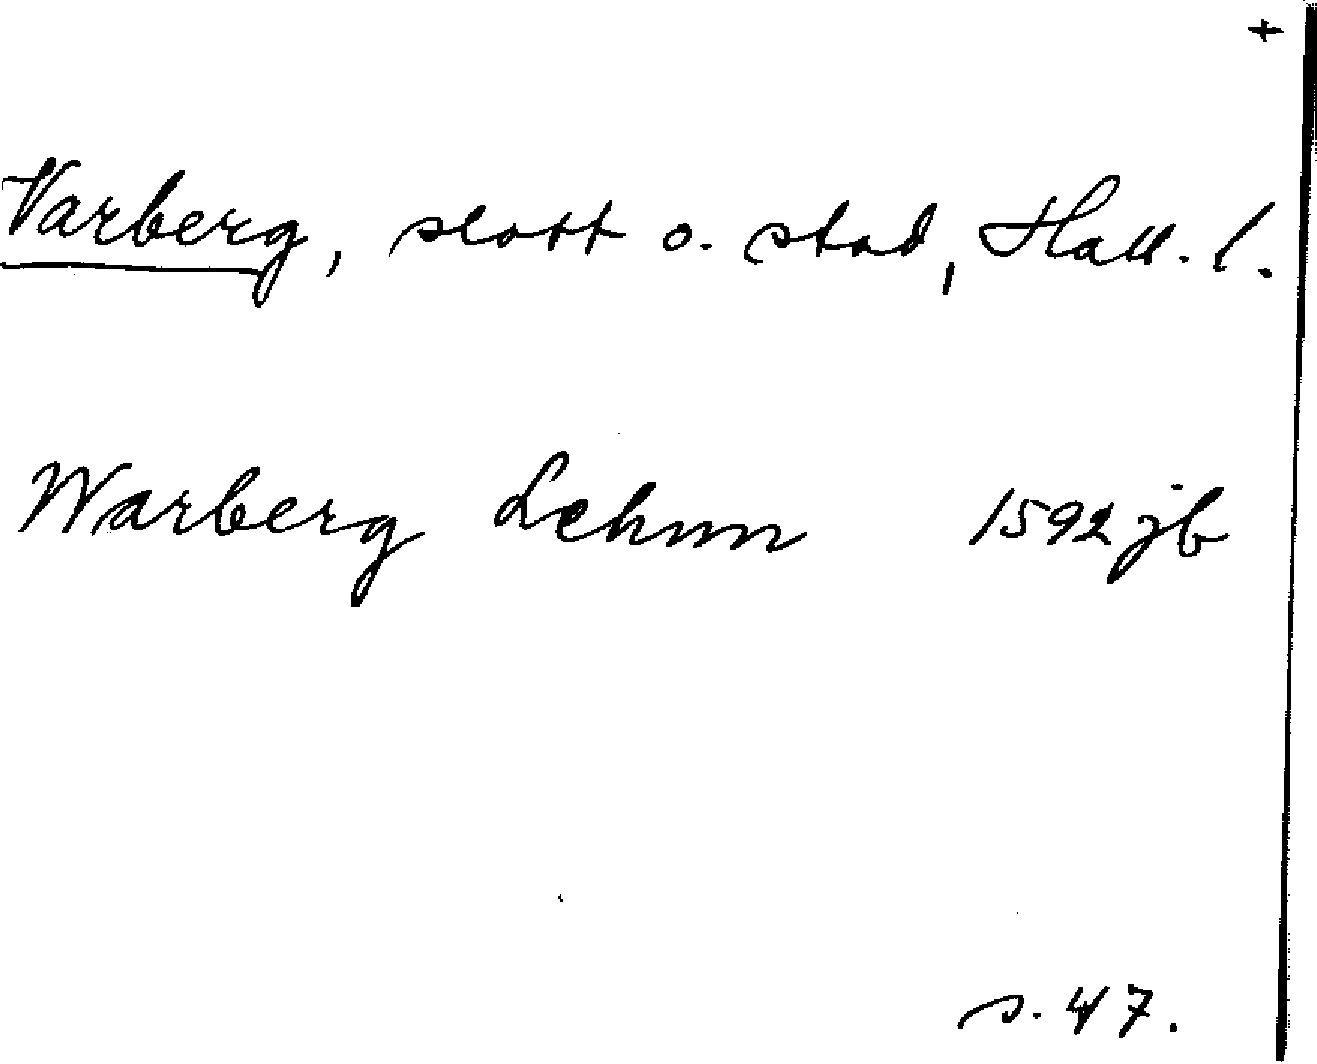 +
Varberg, slott o. stad, Hall. l.
Warberg Lehnn 1592 jb
s. 47.